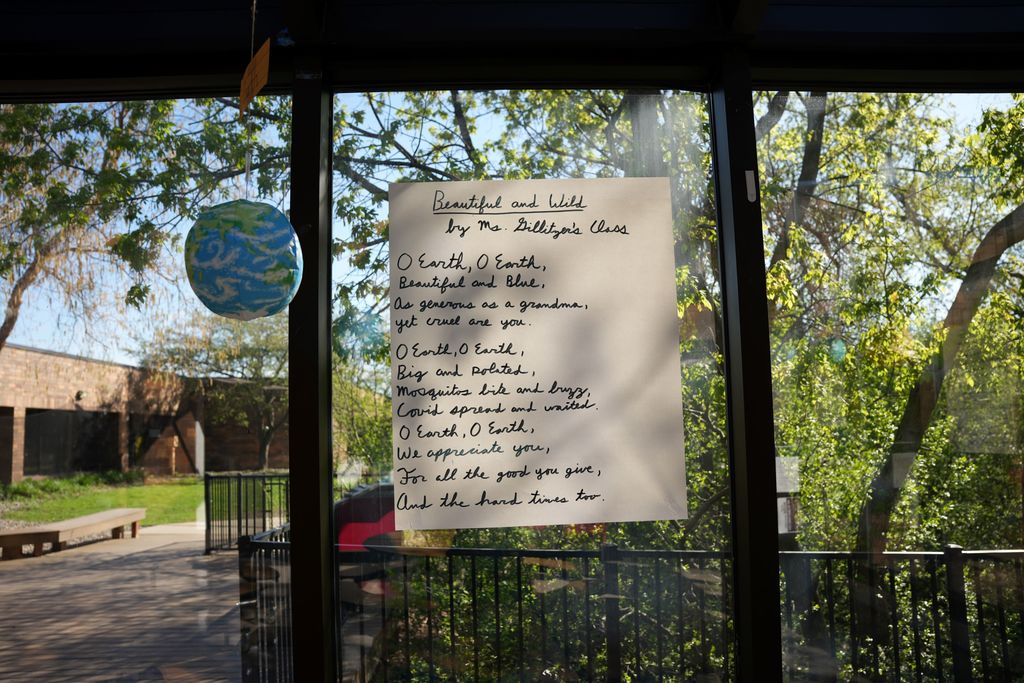 Beautiful and Wild
by Ms. Gillitzer's Class
O Earth, O Earth,
Beautiful and Blue,
As generous as a grandma,
yet cruel are you.
O Earth, O Earth,
Big and poluted,
Mosquitos bite and buzz,
Covid spread and waited.
O Earth, O Earth,
We appreciate you,
For all the good you give,
And the hard times too.